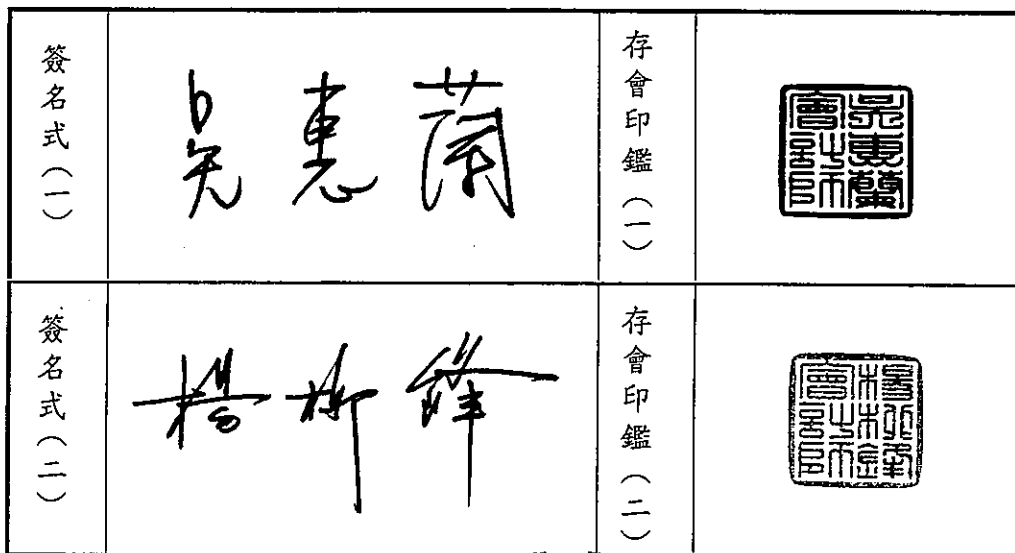 簽名式（一）
吳惠蘭
存會印鑑（一）
吳惠蘭會計師
簽名式（二）
楊柳鋒
存會印鑑（二）
楊柳鋒會計師